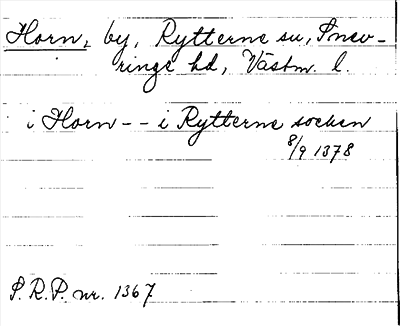 Horn, by, Rytterne sn, Snev-
ringe hd, Västm. l.
i Horn -- i Rytterne socken
8/9 1378
S.R.P. nr. 1367